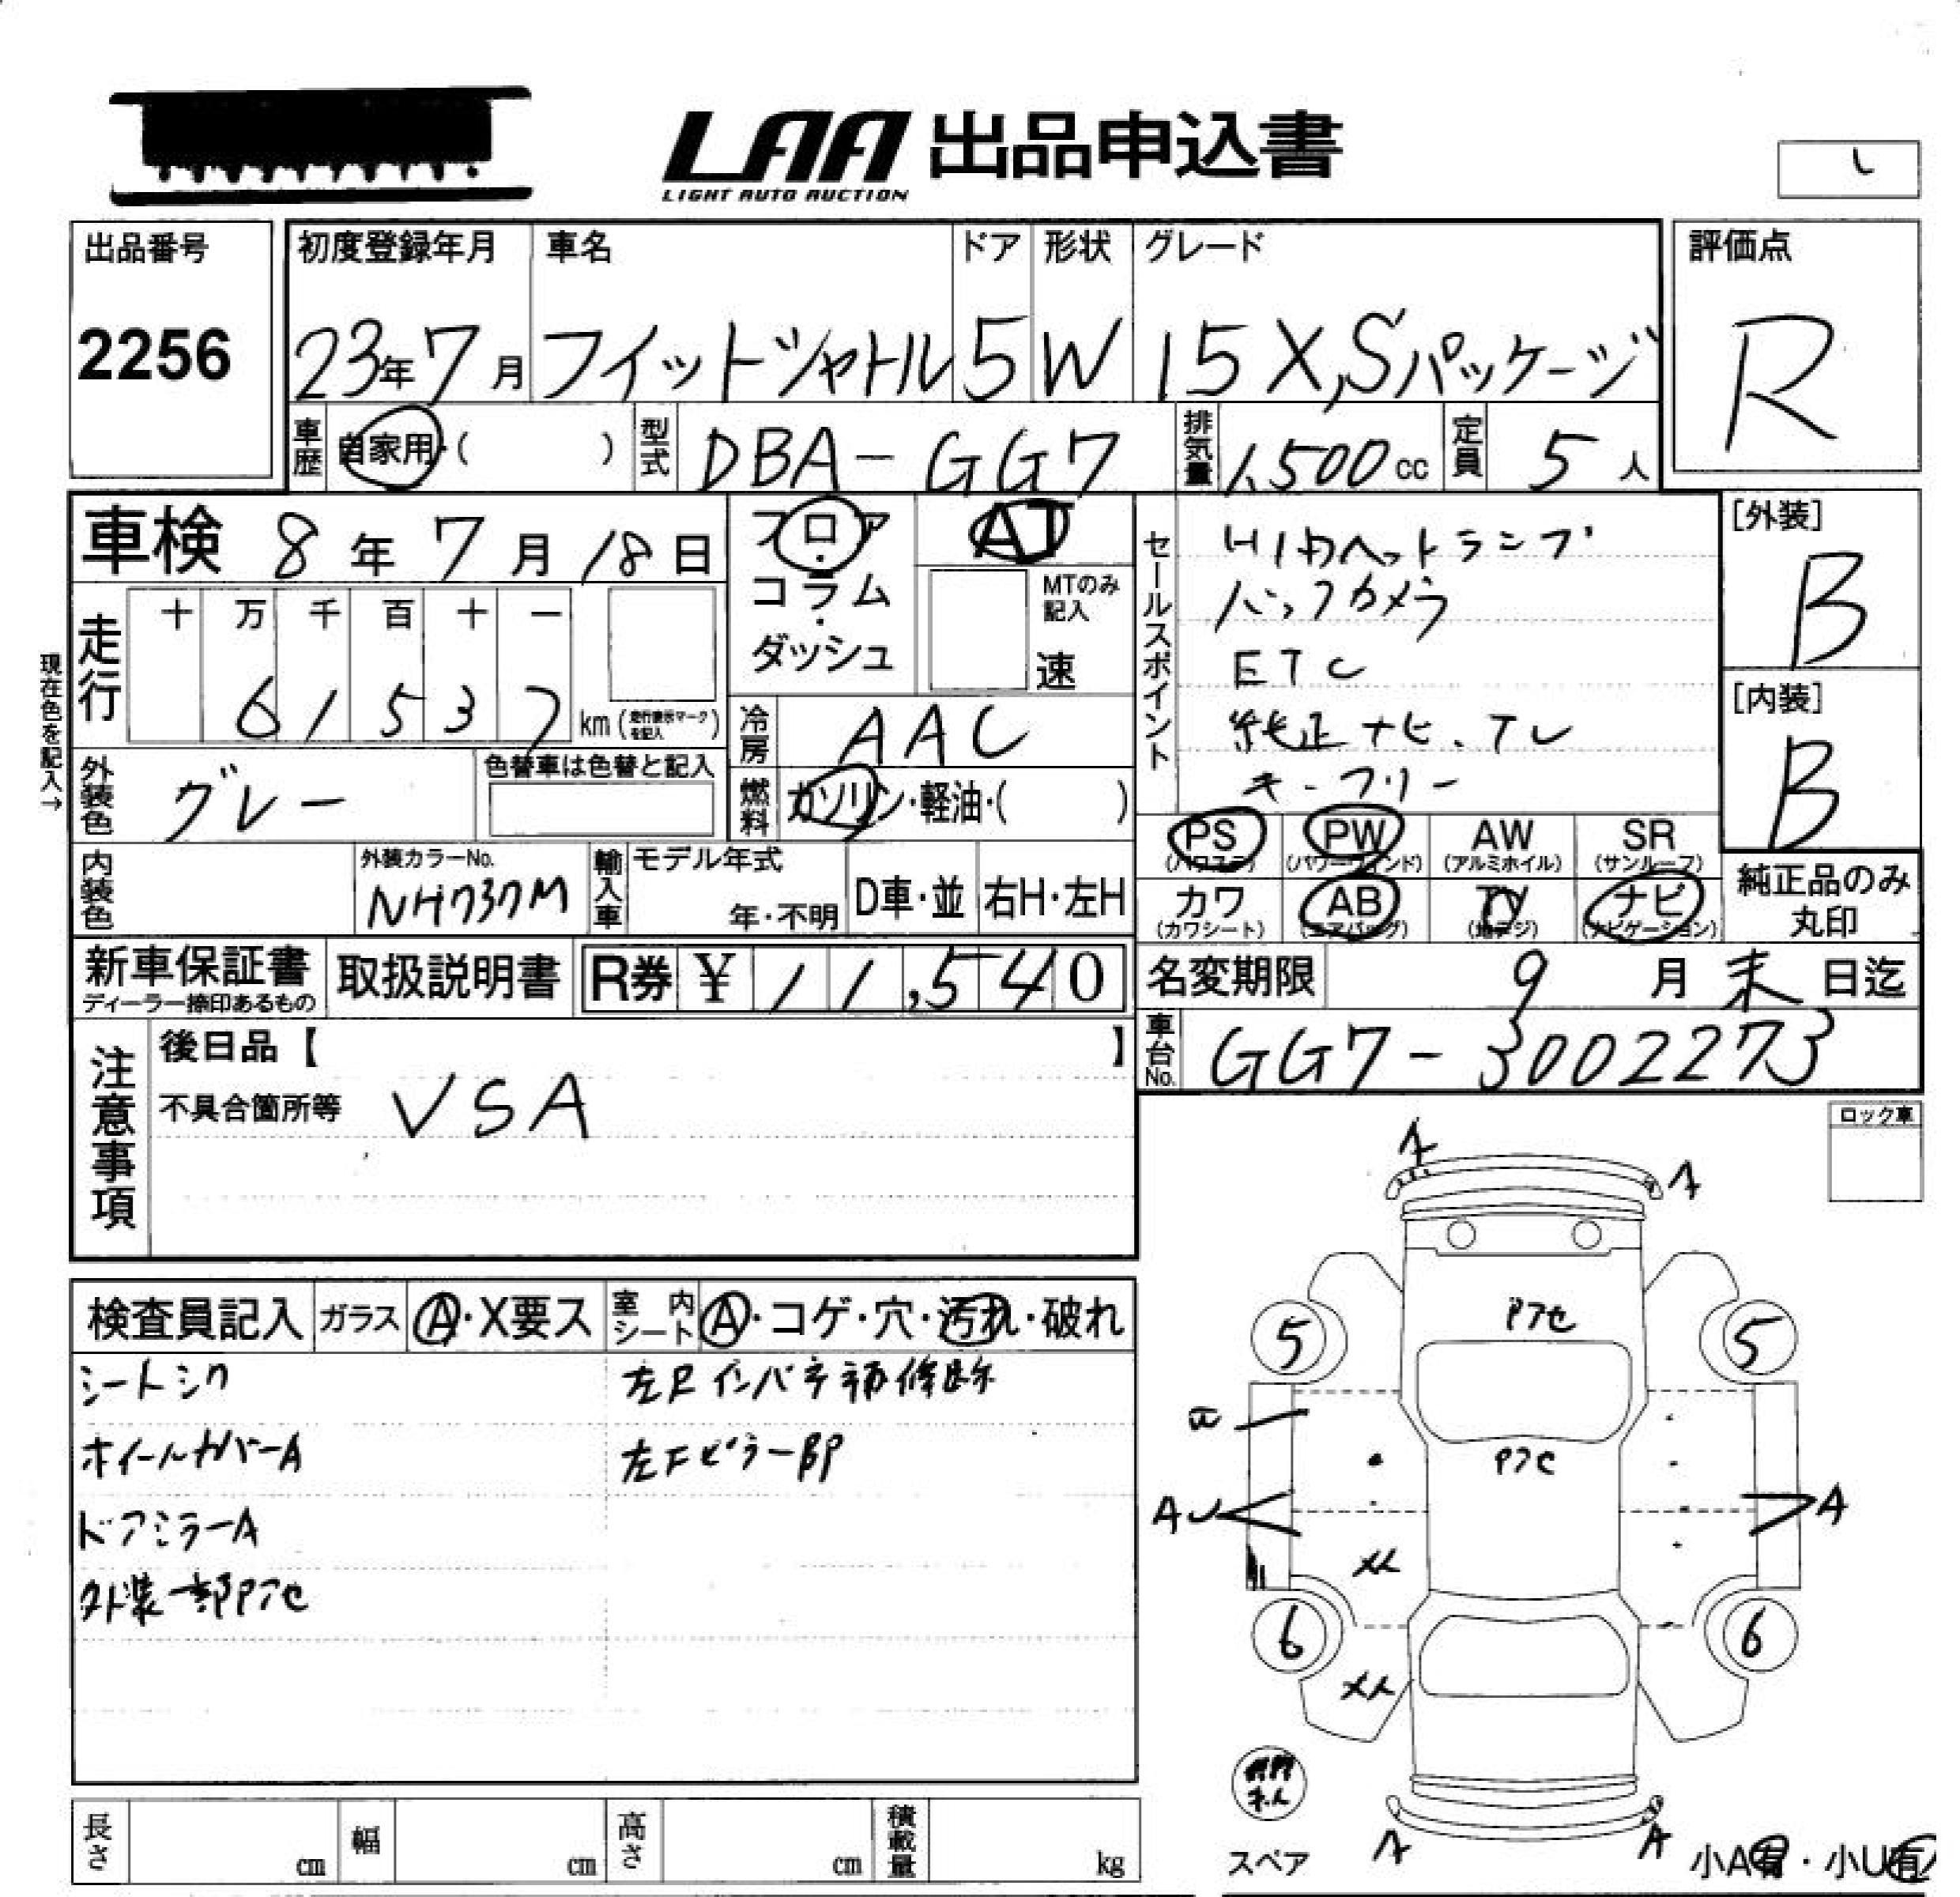 LAA 出品申込書
LIGHT AUTO AUCTION
出品番号 初度登録年月 車名 ドア 形状 グレード 評価点
2256 23年7月 フィットシャトル 5 W 15X,Sパッケージ R
車歴 自家用・( ) 型式 DBA-GG7 排気量 1,500cc 定員 5人
車検 8年7月18日 フロア・コラム・ダッシュ AT
MTのみ記入 速
セールスポイント
HIDヘットランプ
バックカメラ
ETC
純正ナビ、TV
キーフリー
[外装] B
[内装] B
現在色を記入→
走行 十 万 千 百 十 一
61537 km(走行表示マークを記入)
冷房 AAC
外装色 グレー 色替車は色替と記入
燃料 ガソリン・軽油・( )
PS AW SR PW
(パワステ) (パワーウィンド) (アルミホイル) (サンルーフ)
カワ AB TV ナビ
(カワシート) (エアバッグ) (地デジ) (ナビゲーション)
純正品のみ丸印
内装色 外装カラーNo. NH737M 輸入車 モデル年式 年・不明 D車・並 右H・左H
新車保証書 取扱説明書 R券 ¥ 11,540
ディーラー捺印あるもの
名変期限 9月末日迄
車台No. GG7-3002273
注意事項
後日品【 】
不具合箇所等 VSA
ロック車
検査員記入 ガラス A・X要ス 室内シート A・コゲ・穴・汚れ・破れ
シートシワ 左Rインパネ補修跡
ホイールカバーA 左Fピラー
ドアミラーA
外装一部Pアセ
A A
Pアセ
5 5
Pアセ
A A
6 6
スペア
A A
小A有・小U有
長さ cm 幅 cm 高さ cm 積載量 kg